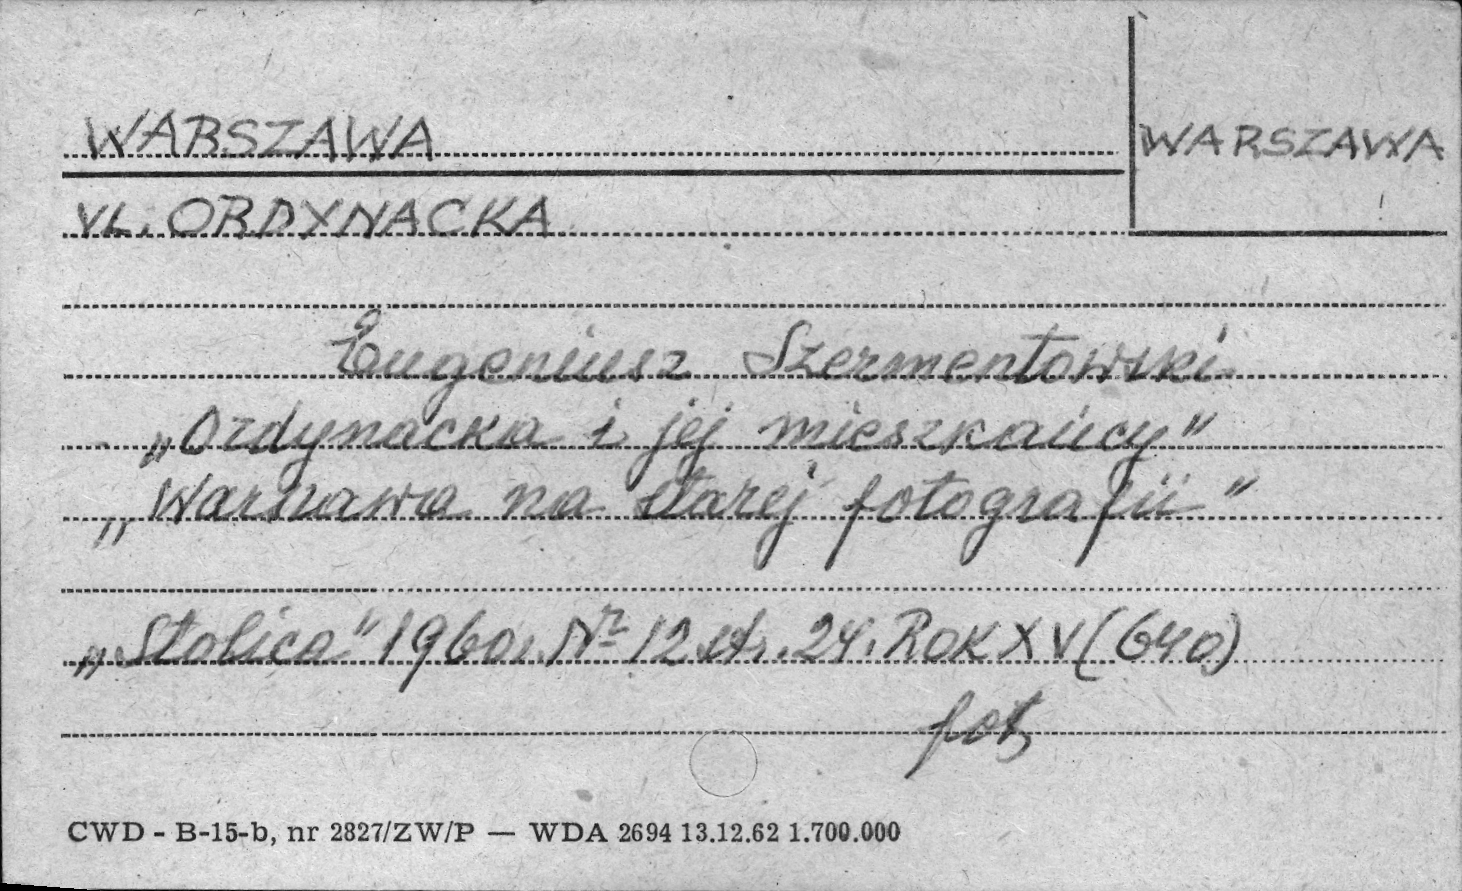 WARSZAWA
WARSZAWA
UL. ORDYNACKA
Eugeniusz Szermentowski
„Ordynacka i jej mieszkańcy"
„Warszawa na starej fotografii"
„Stolica" 1960r. Nr 12 str. 24. ROK XV (640)
fot.
CWD - B-15-b, nr 2827/ZW/P — WDA 2694 13.12.62 1.700.000